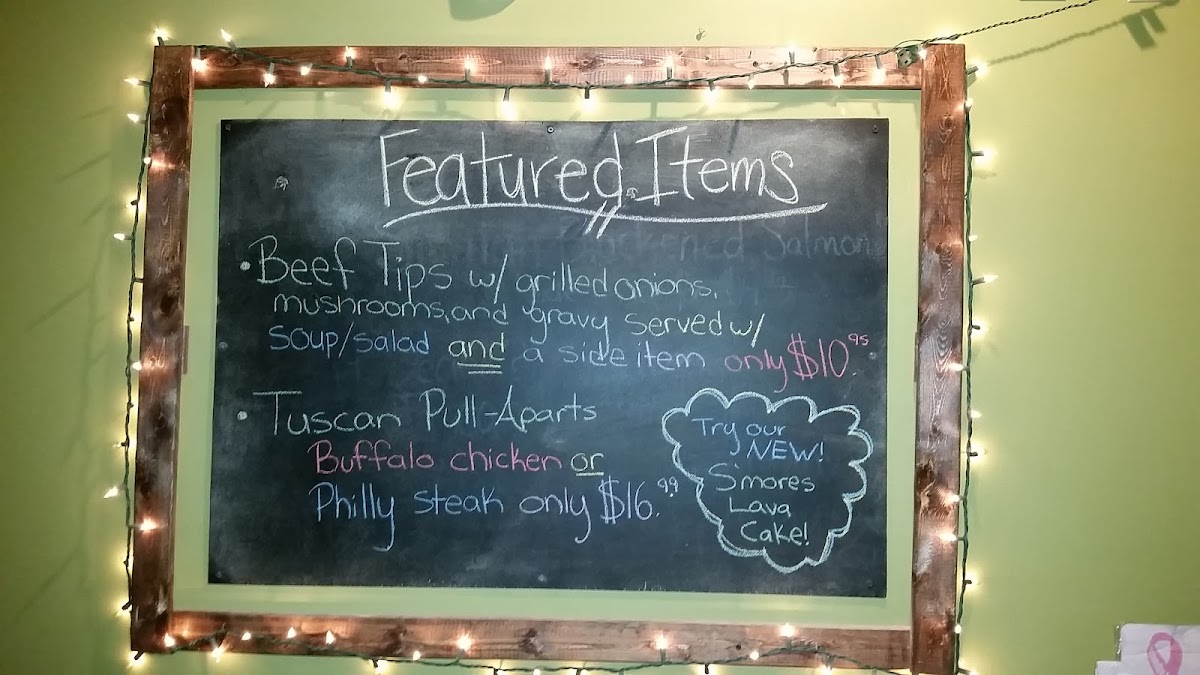 Featured Items
Blackened Salmon
• Beef Tips w/ grilled onions,
mushrooms, and gravy served w/
soup/salad and a side item only $10.95
• Tuscan Pull-Aparts
Buffalo chicken or
Philly steak only $16.99
Try our
NEW!
S'mores
Lava
Cake!